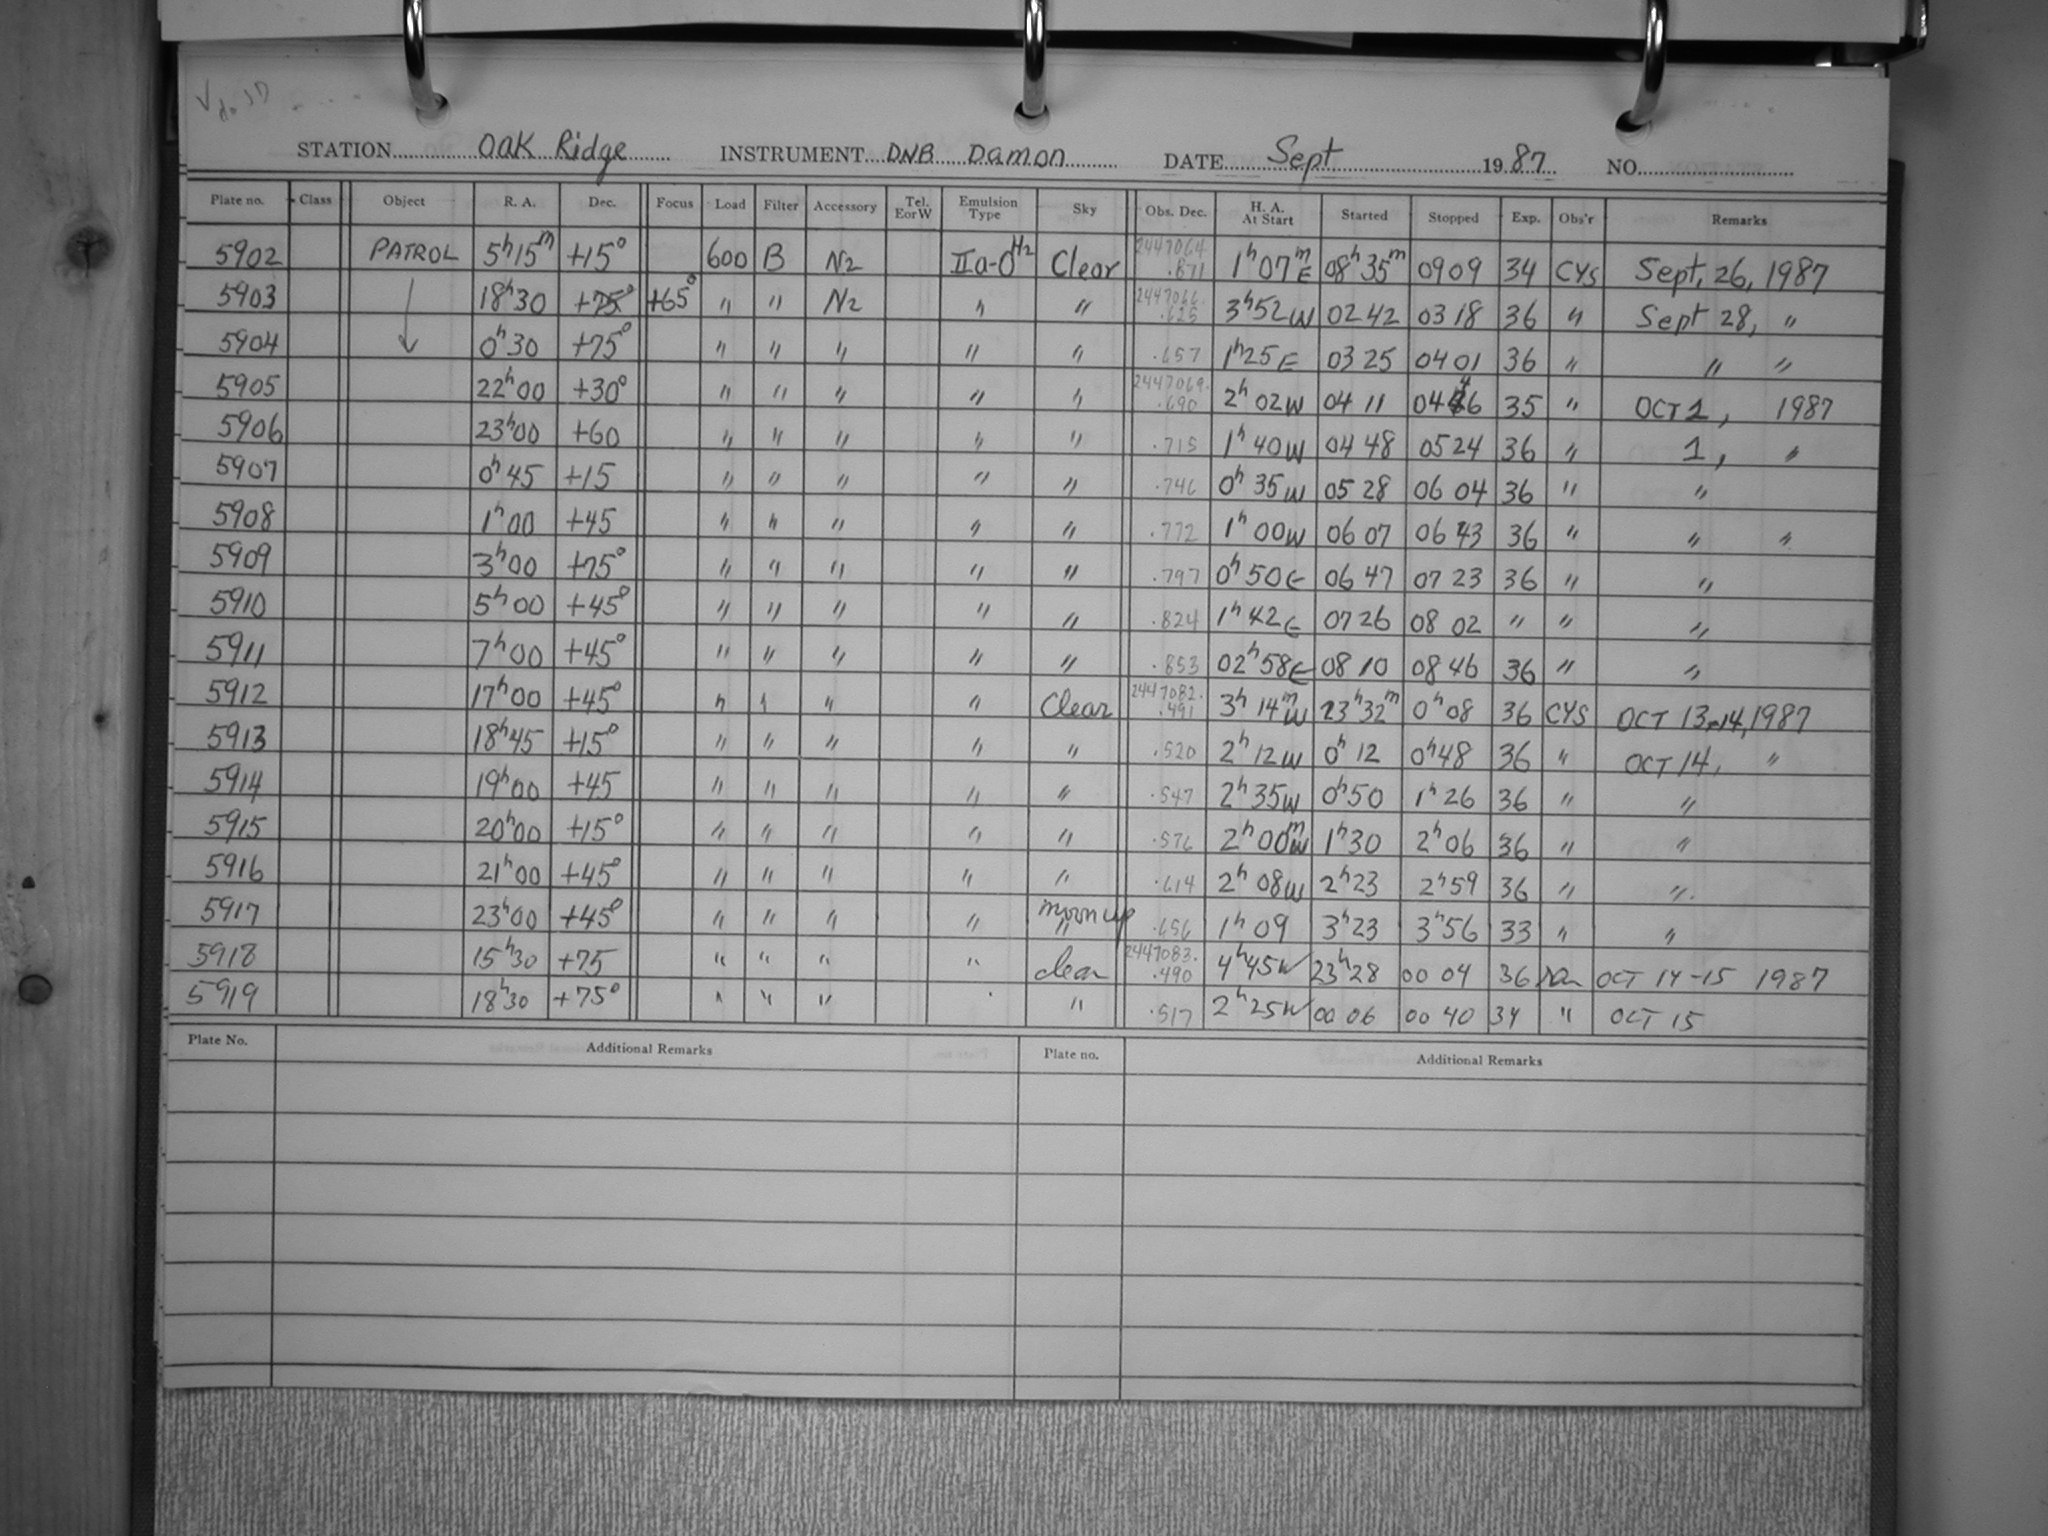 STATION Oak Ridge INSTRUMENT DNB Damon DATE Sept 1987 NO.
Plate no. Class Object R. A. Dec. Focus Load Filter Accessory Tel. E or W Emulsion Type Sky Obs. Dec. H. A. At Start Started Stopped Exp. Obs'r Remarks
5902 PATROL 5h15m +15° 600 B N2 IIa-O H2 Clear 2447064 .871 1h07mE 08h35m 0909 34 CYS Sept, 26, 1987
5903 18h30 +75° +65° " " N2 " " 2447066. .625 3h52W 0242 0318 36 " Sept 28, "
5904 0h30 +75° " " " " " .657 1h25E 0325 0401 36 " " "
5905 22h00 +30° " " " " " 2447069. .690 2h02W 0411 0446 35 " OCT 1, 1987
5906 23h00 +60 " " " " " .715 1h40W 0448 0524 36 " 1, "
5907 0h45 +15 " " " " " .746 0h35W 0528 0604 36 " "
5908 1h00 +45 " " " " " .772 1h00W 0607 0643 36 " " "
5909 3h00 +75° " " " " " .797 0h50E 0647 0723 36 " "
5910 5h00 +45° " " " " " .824 1h42E 0726 0802 " " "
5911 7h00 +45° " " " " " .853 02h58E 0810 0846 36 " "
5912 17h00 +45° " " " " Clear 2447082. .491 3h14mW 23h32m 0h08 36 CYS OCT 13-14, 1987
5913 18h45 +15° " " " " " .520 2h12W 0h12 0h48 36 " OCT 14, "
5914 19h00 +45 " " " " " .547 2h35W 0h50 1h26 36 " "
5915 20h00 +15° " " " " " .576 2h00mW 1h30 2h06 36 " "
5916 21h00 +45° " " " " " .614 2h08W 2h23 2h59 36 " "
5917 23h00 +45° " " " " moon up " .656 1h09 3h23 3h56 33 " "
5918 15h30 +75 " " " " clear 2447083. .490 4h45W 23h28 0004 36 OCT 14-15 1987
5919 18h30 +75° " " " " .517 2h25W 0006 0040 34 " OCT 15
Plate No. Additional Remarks Plate no. Additional Remarks